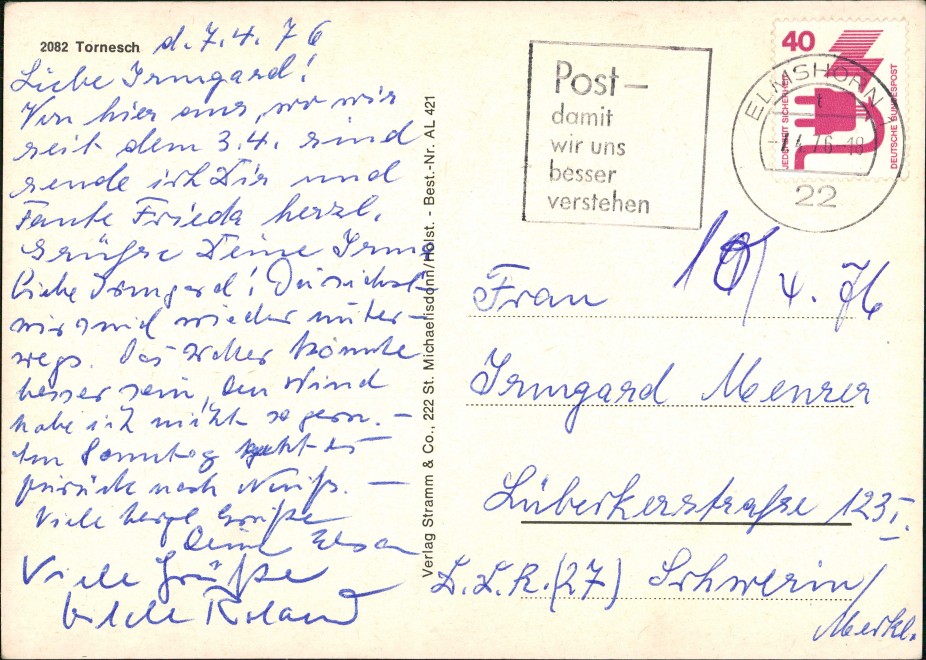 2082 Tornesch d. 7.4.76
Liebe Irmgard!
Von hier aus, wo wir
seit dem 3.4. sind
sende ich Dir und
Tante Frieda herzl.
Grüße Deine Irma
Liebe Irmgard! Du siehst
wir sind wieder unter-
wegs. Das Wetter könnte
besser sein, den Wind
habe ich nicht so gern. —
Am Sonntag geht es
zurück nach Neuß. —
Viele herzl. Grüße
Deine
Viele Grüße
Roland
Verlag Stramm & Co., 222 St. Michaelisdonn/Holst. - Best.-Nr. AL 421
Post –
damit
wir uns
besser
verstehen
40
JEDERZEIT SICHERHEIT
DEUTSCHE BUNDESPOST
ELMSHORN 1
t
-7.4.76-18
22
10/4.76
Frau
Irmgard Menzer
Lübeckerstraße 123 I.
D.D.R. (27) Schwerin/
Meckl.